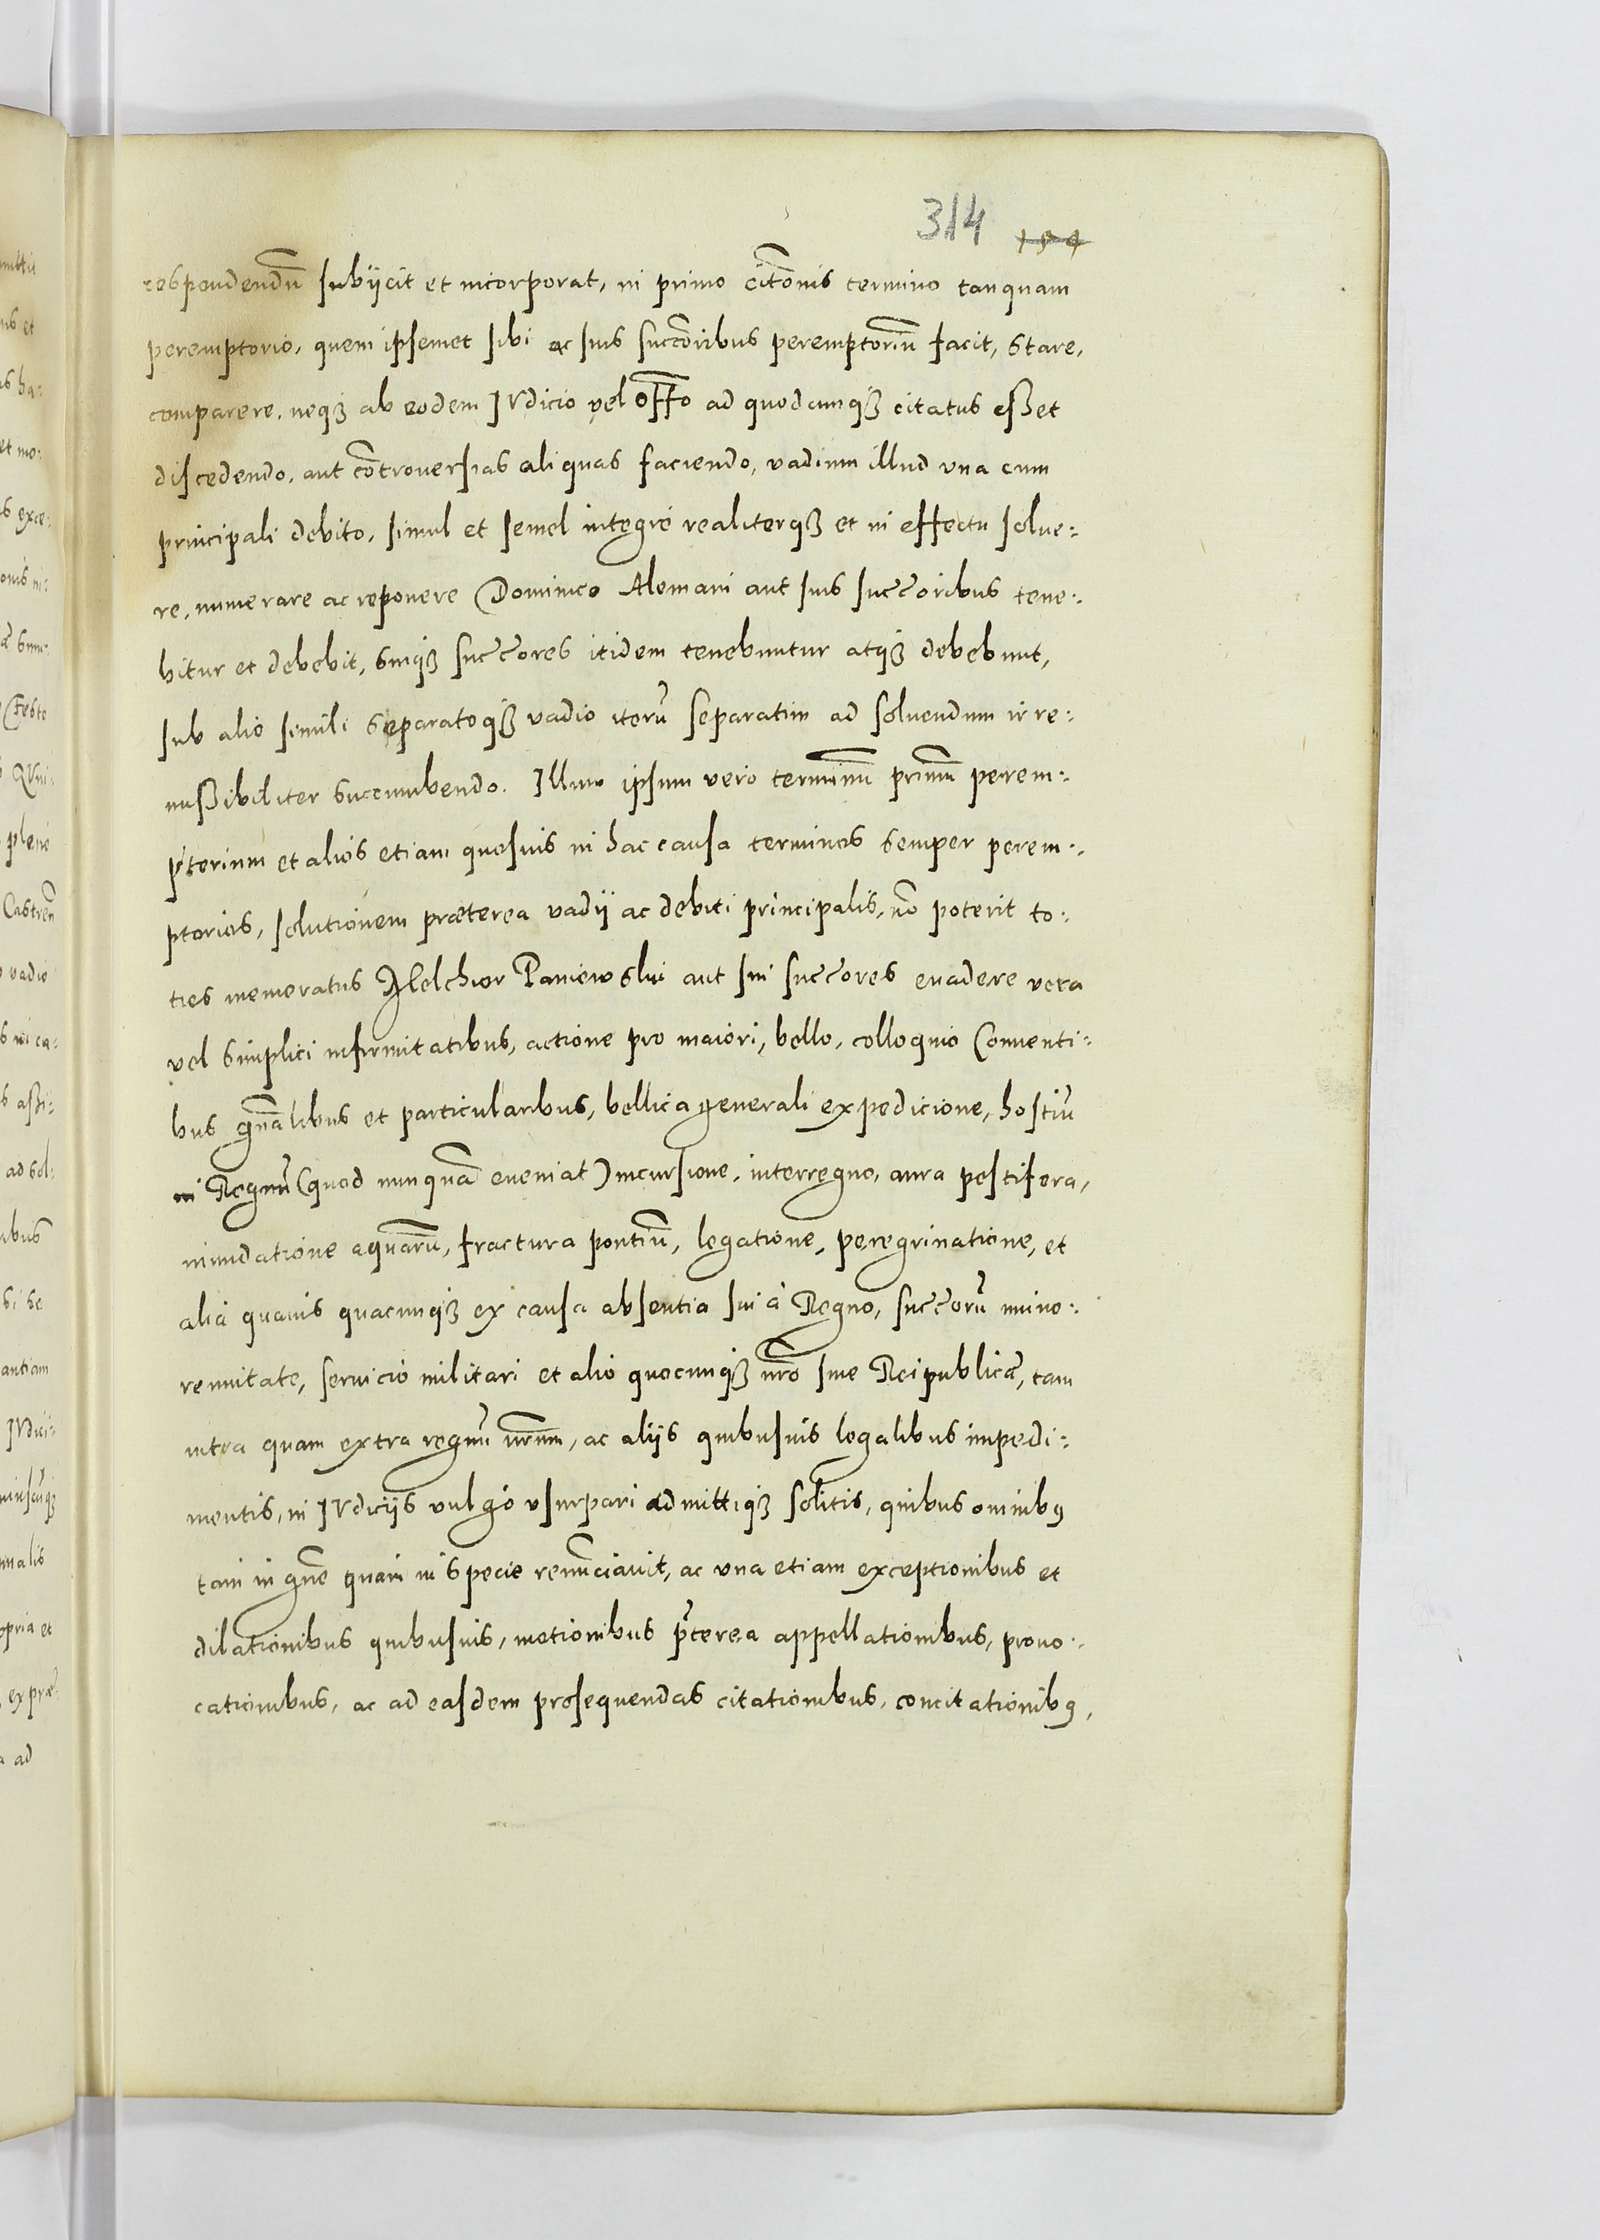 314 194
respondendũ subijcit et incorporat, in primo cit̃onis termino tanquam
peremptorio, quem ipsemet sibi ac suis succc̃oribus peremptoriũ facit, stare,
comparere, neqȝ ab eodem IVdicio vel off̃o ad quodcunqȝ citatus eßet
discedendo, aut cõtrouersias aliquas faciendo, vadium illud vna cum
principali debito, simul et semel integrè realiterqȝ et in effectu solue:
re, numerare ac reponere Dominico Alemani aut suis succ̃oribus tene:
bitur et debebit, suiqȝ succ̃ores itidem tenebuntur atqȝ debebunt,
sub alio simili separatoqȝ vadio iterũ separatim ad soluendum irre:
mißibiliter succumbendo. Illum ipsum vero terminũ primũ perem:
ptorium et alios etiam quosuis in hac causa terminos semper perem:
ptorios, solutionem præterea vadij ac debiti principalis, nõ poterit to:
ties memoratus Melchior Paniewski aut sui succ̃ores euadere vera
vel simplici infirmitatibus, actione pro maiori, bello, colloquio Conuenti:
bus gñalibus et particularibus, bellica generali expedicione, hostiũ
in Regnũ (quod nunquã eueniat) incursione, interregno, aura pestifera,
inundatione aquarũ, fractura pontiũ, legatione, peregrinatione, et
alia quauis quacunqȝ ex causa absentia sui à Regno, succ̃orũ mino:
rennitate, seruicio militari et alio quocunqȝ nr̃o siue Reipublicæ, tam
intra quam extra regnũ nr̃um, ac alijs quibusuis legalibus impedi:
mentis, in IVdicijs vulgò vsurpari admittiqȝ solitis, quibus omnibꝯ
tam in gñe quam in specie renũciauit, ac vna etiam exceptionibus et
dilationibus quibusuis, motionibus p̃terea appellationibus, prouo:
cationibus, ac ad easdem prosequendas citationibus, concitationibꝯ,